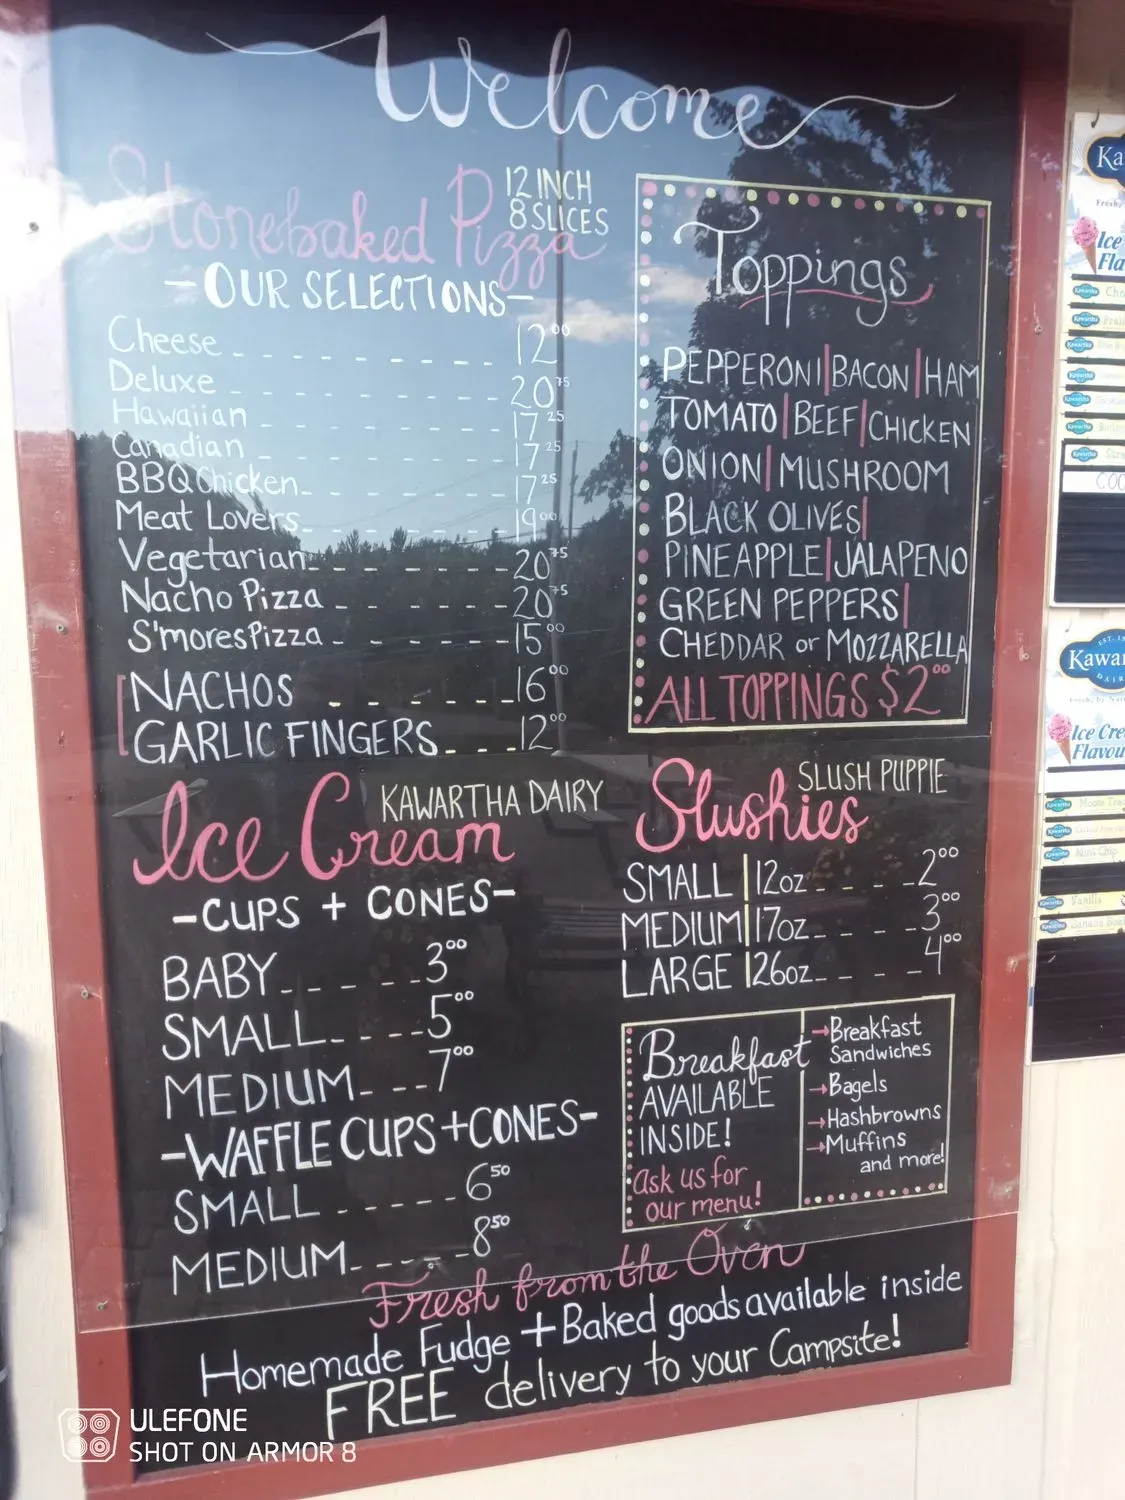 Welcome
Stonebaked Pizza
12 INCH
8 SLICES
-OUR SELECTIONS-
Cheese 12.00
Deluxe 20.75
Hawaiian 17.25
Canadian 17.25
BBQ Chicken 17.25
Meat Lovers 19.00
Vegetarian 20.75
Nacho Pizza 20.75
S'mores Pizza 15.00
NACHOS 16.00
GARLIC FINGERS 12.00
Toppings
PEPPERONI|BACON|HAM
TOMATO|BEEF|CHICKEN
ONION|MUSHROOM
BLACK OLIVES|
PINEAPPLE|JALAPENO
GREEN PEPPERS|
CHEDDAR or MOZZARELLA
ALL TOPPINGS $2.00
Ice Cream
KAWARTHA DAIRY
-CUPS + CONES-
BABY 3.00
SMALL 5.00
MEDIUM 7.00
-WAFFLE CUPS+CONES-
SMALL 6.50
MEDIUM 8.50
Slushies
SLUSH PUPPIE
SMALL|12oz 2.00
MEDIUM|17oz 3.00
LARGE|26oz 4.00
Breakfast
AVAILABLE
INSIDE!
ask us for
our menu!
→Breakfast
Sandwiches
→Bagels
→Hashbrowns
→Muffins
and more!
Fresh from the Oven
Homemade Fudge + Baked goods available inside
FREE delivery to your Campsite!
ULEFONE
SHOT ON ARMOR 8